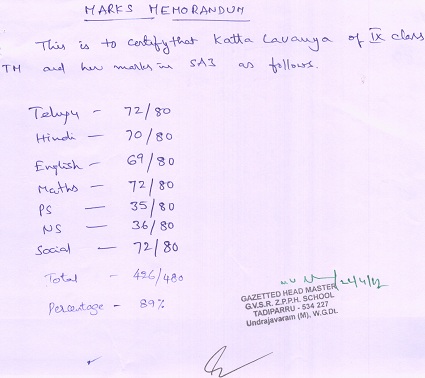 MARKS MEMORANDUM
This is to certify that Katta Lavanya of IX class
TM and her marks in SA3 as follows.
Telugu - 72/80
Hindi - 70/80
English - 69/80
Maths - 72/80
PS - 35/80
NS - 36/80
Social - 72/80
Total - 426/480
Percentage - 89%
GAZETTED HEAD MASTER
G.V.S.R. Z.P.P.H. SCHOOL
TADIPARRU - 534 227
Undrajavaram (M), W.G.DL